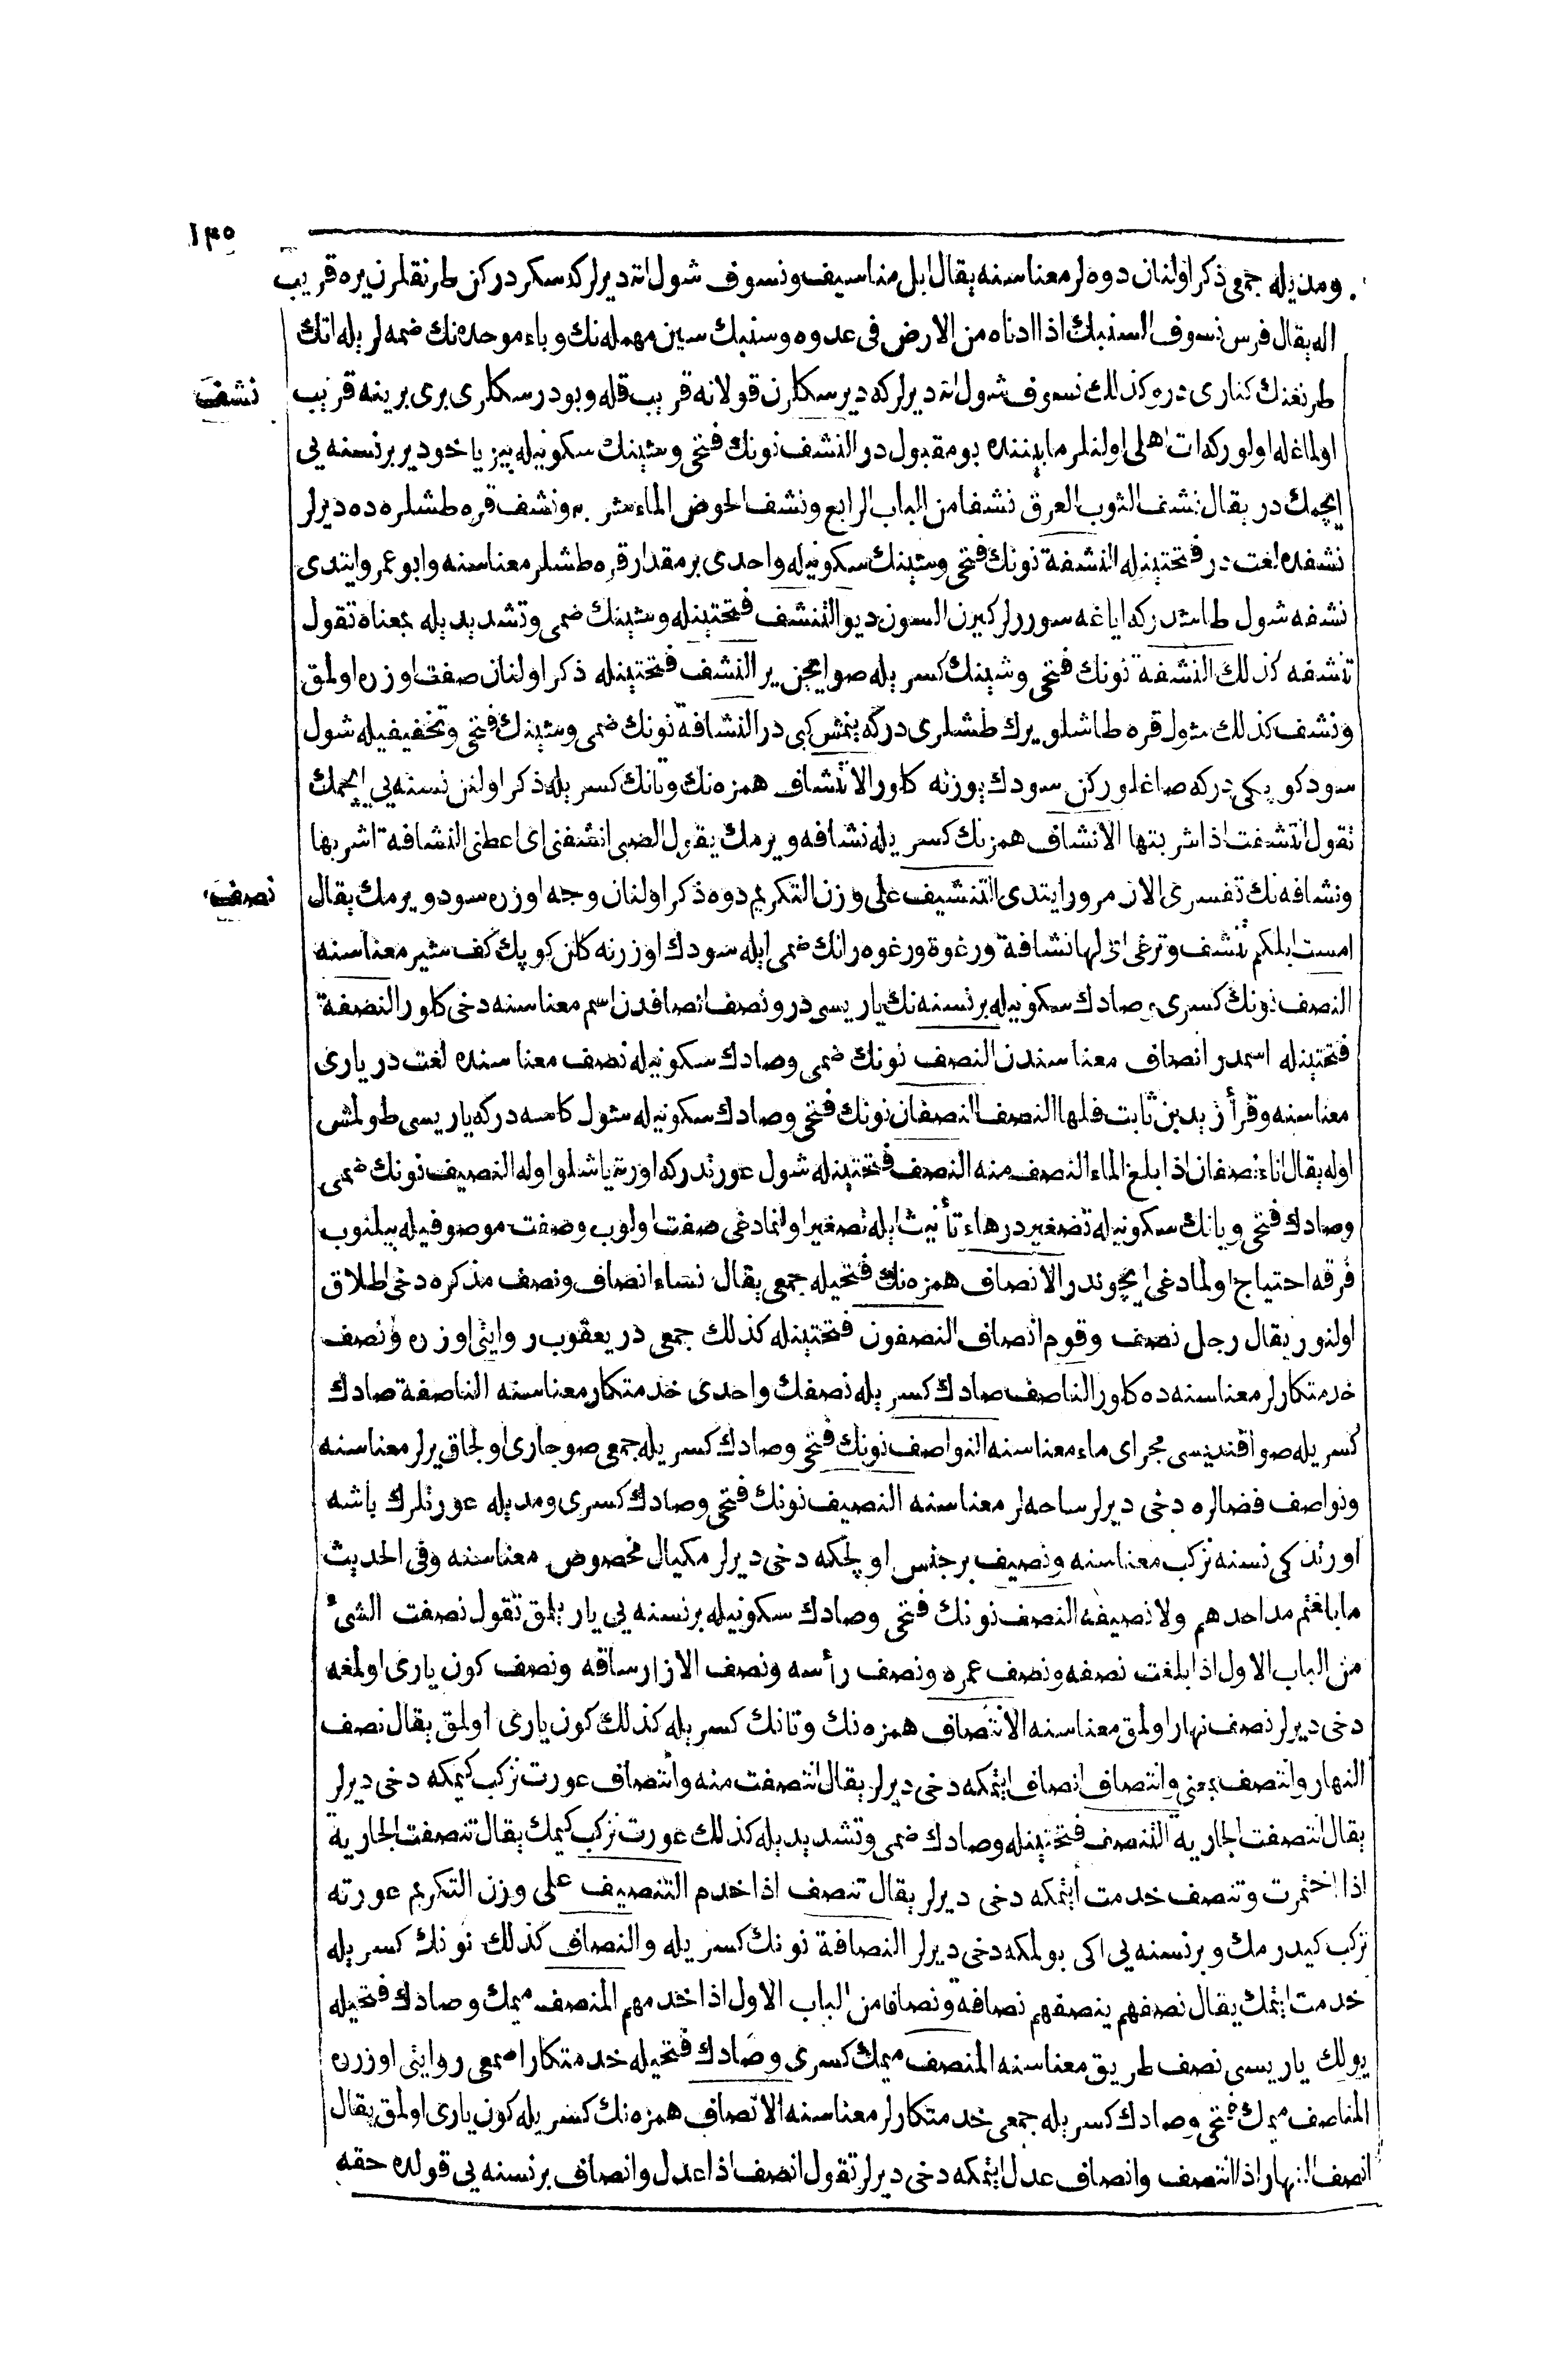 ١٣٥
ومديله جمعى ذكر اولنان دوه لر معناسنه يقال ابل مناسيف ونسوف شول اته ديرلر كه سكردركن طرنقلرن يره قريب
اله يقال فرس نسوف السنبك اذا ادناه من الارض فى عدوه وسنبك سين مهمله نك وباء موحده نك ضمه لريله اتك
طرنغنك كنارى دره كذلك نسوف شول اته ديرلر كه ديرسكلرن قولانه قريب قله وبو ديرسكلرى برى برينه قريب
نشف
اولماغله اولور كه ات اهلى اولنلر مابيننده بو مقبول در النشف نونك فتحى وشينك سكونيله بيز ياخود ير بر نسنه يى
ايچمك در يقال نشف الثوب العرق نشفا من الباب الرابع ونشف الحوض الماء شربه ونشف قره طشلره ده ديرلر
نشفده لغت در فتحتينله النشفة نونك فتحى وشينك سكونيله واحدى بر مقدار قره طشلر معناسنه وابو عمرو ايتدى
نشفه شول طاشدر كه اياغه سوررلر كيرن السون ديو التنشف فتحتينله وشينك ضمى وتشديديله بمعناه تقول
تنشفه كذلك النشفة نونك فتحى وشينك كسريله صو ايچن ير النشف فتحتينله ذكر اولنان صفت اوزره اولمق
ونشف كذلك شول قره طاشلو يرك طشلرى در كه ينمش كبى در النشافة نونك ضمى وشينك فتحى وتخفيفيله شول
سود كوپكى در كه صاغلوركن سودك يوزنه كلور الانتشاف همزه نك وتانك كسريله ذكر اولنن نسنه يى ايچمك
تقول انتشفت اذا شربتها الانشاف همزنك كسريله نشافه ويرمك يقول الصبى انشفنى اى اعطنى النشافة اشربها
ونشافه نك تفسرى الان مرور ايتدى التنشيف على وزن التكريم دوه ذكر اولنان وجه اوزره سود ويرمك يقال
نصف
امست ابلكم تنشف وترغى اى لها نشافة ورغوة ورغوه رانك ضمى ايله سودك اوزرنه كلن كوپك كف شير معناسنه
النصف نونك كسرى وصادك سكونيله بر نسنه نك ياريسى در ونصف انصافدن اسم معناسنه دخى كلور النصفة
فتحتينله اسمدر انصاف معناسندن النصف نونك ضمى وصادك سكونيله نصف معناسنده لغت در يارى
معناسنه وقرأ زيد بن ثابت فلها النصف النصفان نونك فتحى وصادك سكونيله شول كاسه در كه ياريسى طولمش
اوله يقال اناء نصفان اذا بلغ الماء النصف منه النصف فتحتينله شول عورتدر كه اورته ياشلو اوله النصيف نونك ضمى
وصادك فتحى ويانك سكونيله تصغيردر هاء تأنيث ايله تصغير اولنمادغى صفت اولوب وصفت موصوفيله بيلنوب
فرقه احتياج اولمادغى ايچوندر الانصاف همزه نك فتحيله جمعى يقال نساء انصاف ونصف مذكره دخى اطلاق
اولنور يقال رجل نصف وقوم انصاف النصفون فتحتينله كذلك جمعى در يعقوب روايتى اوزره ونصف
خدمتكارلر معناسنه ده كلور الناصف صادك كسريله نصفك واحدى خدمتكار معناسنه الناصفة صادك
كسريله صو اقنديسى مجراى ماء معناسنه النواصف نونك فتحى وصادك كسريله جمعى صو جارى اولجاق يرلر معناسنه
ونواصف فضالره دخى ديرلر ساحه لر معناسنه النصيف نونك فتحى وصادك كسرى ومديله عورتلرك باشه
اورندكى نسنه نزكب معناسنه ونصيف بر جنس اولچكه دخى ديرلر مكيال مخصوص معناسنه وفى الحديث
ما بلغتم مد احدهم ولا نصيفه النصف نونك فتحى وصادك سكونيله بر نسنه يى ياريلمق تقول نصفت الشئ
من الباب الاول اذا بلغت نصفه ونصف عمره ونصف رأسه ونصف الازار ساقه ونصف كون يارى اولمغه
دخى ديرلر نصف نهار اولمق معناسنه الانتصاف همزه نك وتانك كسريله كذلك كون يارى اولمق يقال نصف
النهار وانتصف بمعنى وانتصاف انصاف ايتمكه دخى ديرلر يقال انتصفت منه وانتصاف عورت نزكب كيمكه دخى ديرلر
يقال انتصفت الجارية التنصف فتحتينله وصادك ضمى وتشديديله كذلك عورت نزكب كيمك يقال تنصفت الجارية
اذا اختمرت وتنصف خدمت ايتمكه دخى ديرلر يقال تنصف اذا خدم التنصيف على وزن التكريم عورته
نزكب كيدرمك وبر نسنه يى اكى بولمكه دخى ديرلر النصافة نونك كسريله والنصاف كذلك نونك كسريله
خدمت ايتمك يقال نصفهم ينصفهم نصافة ونصافا من الباب الاول اذا خدمهم المنصف ميمك وصادك فتحيله
يولك ياريسى نصف طريق معناسنه المنصف ميمك كسرى وصادك فتحيله خدمتكار اصمعى روايتى اوزره
المناصف ميمك فتحى وصادك كسريله جمعى خدمتكارلر معناسنه الانصاف همزه نك كسريله كون يارى اولمق يقال
انصف النهار اذا انتصف وانصاف عدل ايتمكه دخى ديرلر تقول انصف اذا عدل وانصاف بر نسنه يى قولده حقه